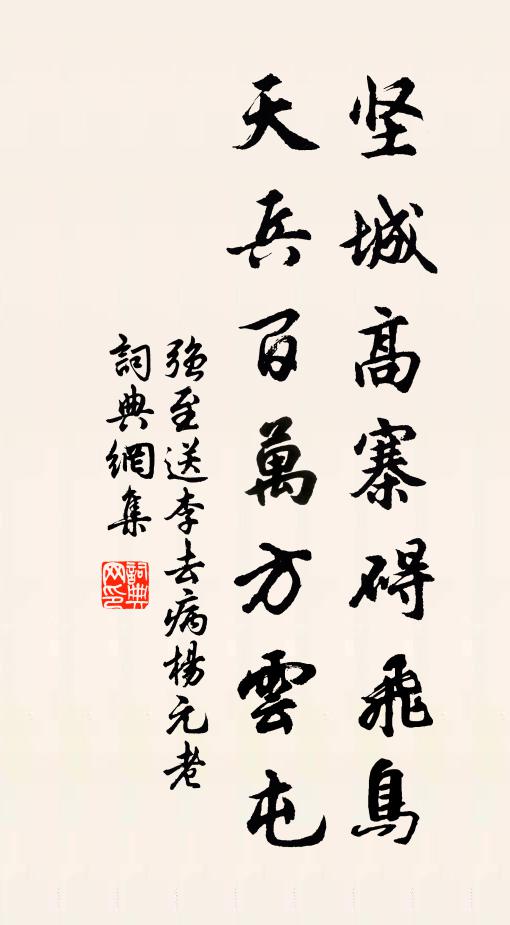 坚城高寨碍飛鳥
天兵百萬方雲屯
强至送李去病楊元老
詞典網集
詞典
网印